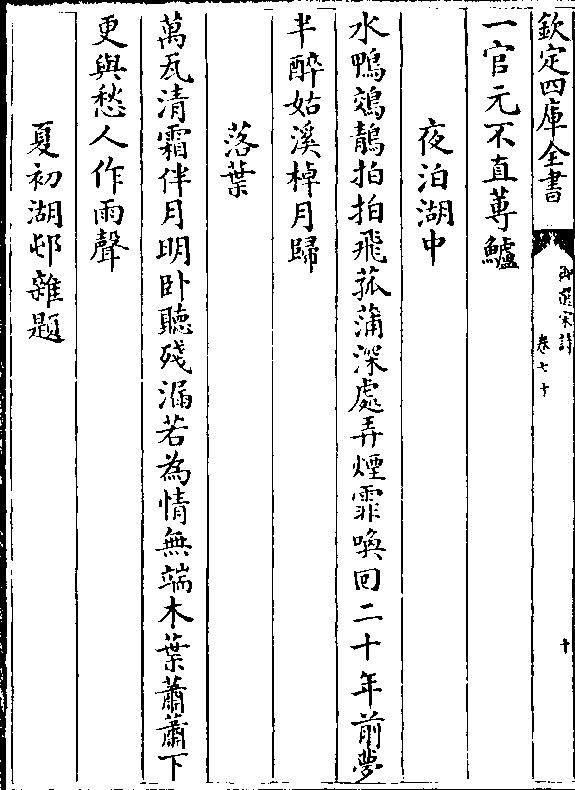 欽定四庫全書
御選宋詩 卷七十 十
一官元不直蓴鱸
夜泊湖中
水鴨鵁鶄拍拍飛菰蒲深處弄煙霏喚回二十年前夢
半醉姑溪棹月歸
落葉
萬瓦清霜伴月明卧聽殘漏若為情無端木葉蕭蕭下
更與愁人作雨聲
夏初湖邨雜題